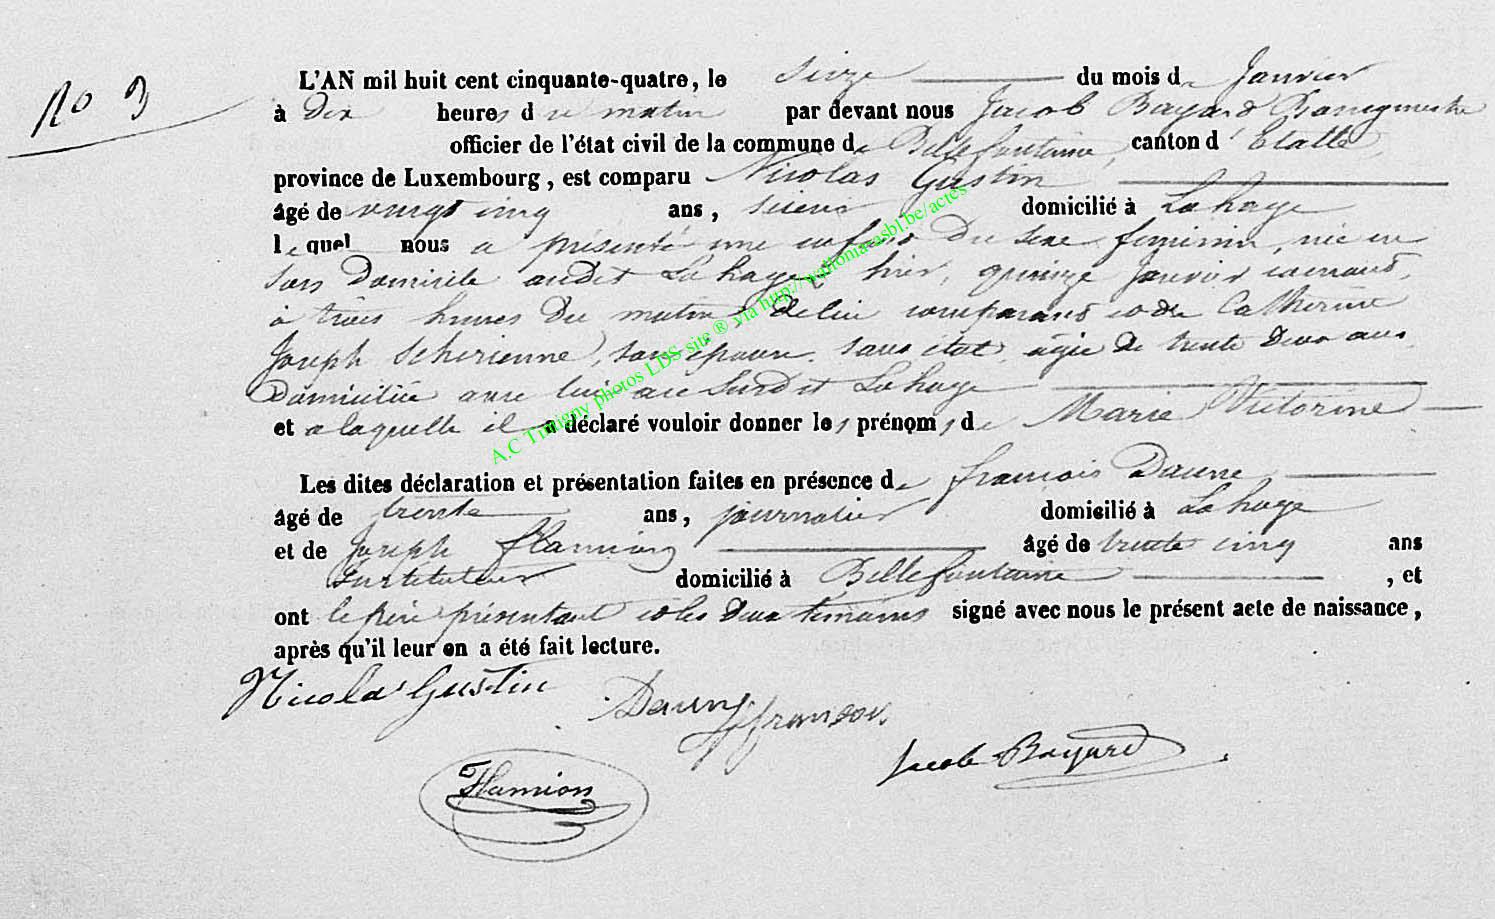 No 3
L'AN mil huit cent cinquante-quatre, le Seize du mois de Janvier
à Dix heures du matin par devant nous Jacob Bayard Bourgmestre
officier de l'état civil de la commune de Bellefontaine, canton d'Etalle,
province de Luxembourg, est comparu Nicolas Gustin
âgé de vingt cinq ans, domicilié à Lahage
lequel nous a présenté une enfant Du sexe feminin, née en
son Domicile audit Lahage hier, quinze Janvier courant,
à trois heures Du matin, de lui comparant et de Catherine
Joseph Scherienne, son épouse, sans état, agée De trente Deux ans,
Domiciliée avec lui au Susdit Lahage
et a laquelle il a déclaré vouloir donner les prénoms de Marie Victorine
Les dites déclaration et présentation faites en présence de françois Daune
âgé de trente ans, journalier domicilié à Lahage
et de Joseph flamion âgé de trente cinq ans
Instituteur domicilié à Bellefontaine, et
ont le père présentant et les deux témoins signé avec nous le présent acte de naissance,
après qu'il leur en a été fait lecture.
Nicolas Gustin
françois
Jacob Bayard
Flamion
A.C Tintigny photos LDS site ® via http://wallonia-asbl.be/actes